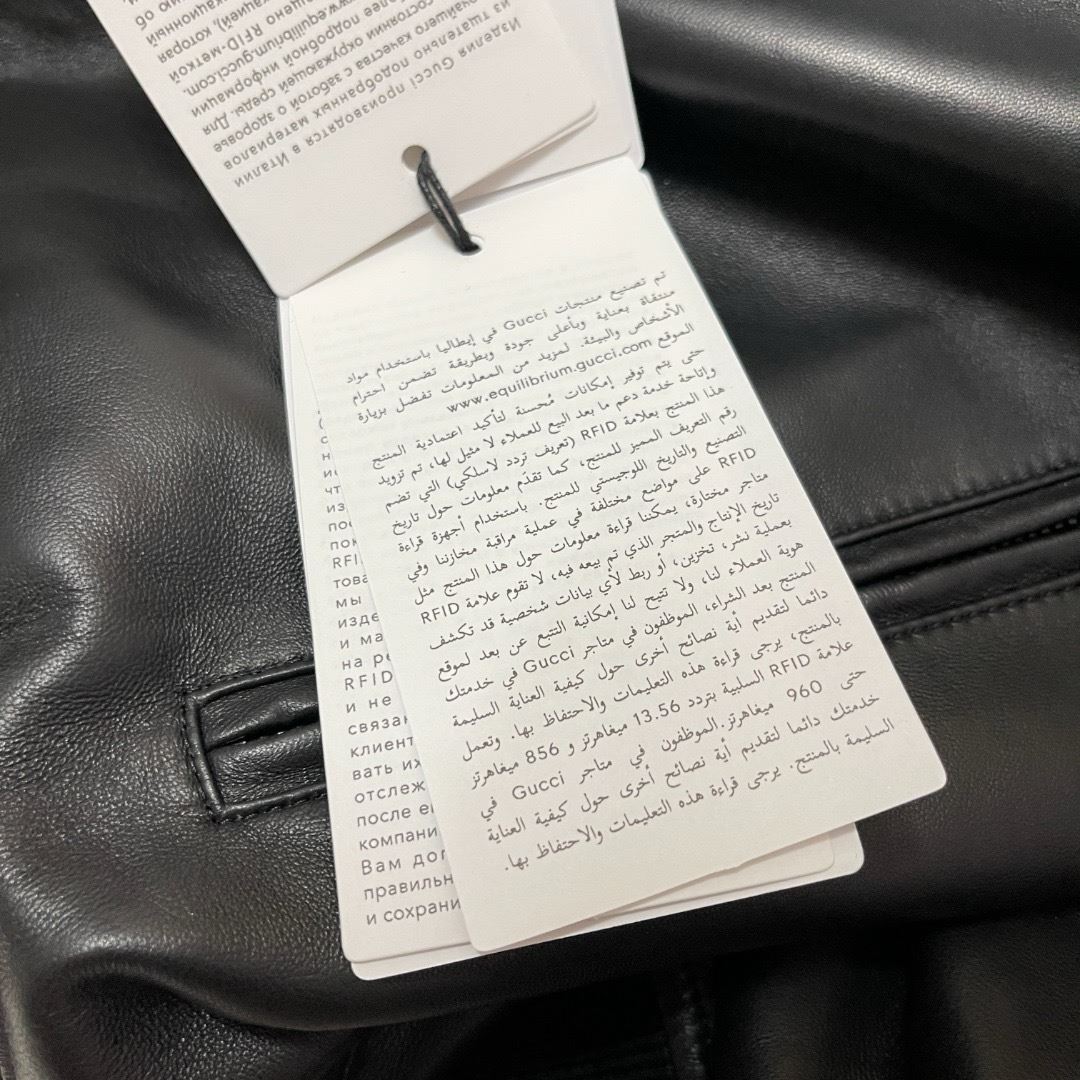 Изделия Gucci производятся в Италии
из тщательно подобранных материалов
высочайшего качества с заботой о здоровье
состоянии окружающей среды. Для
более подробной информации
www.equilibrium.gucci.com.
RFID-меткой
которая
об
تم تصنيع منتجات Gucci في إيطاليا باستخدام مواد
منتقاة بعناية وبأعلى جودة وبطريقة تضمن احترام
الأشخاص والبيئة. لمزيد من المعلومات تفضل بزيارة
الموقع www.equilibrium.gucci.com
حتى يتم توفير إمكانات مُحسنة لتأكيد اعتمادية المنتج
وإتاحة خدمة دعم ما بعد البيع للعملاء لا مثيل لها، تم تزويد
هذا المنتج بعلامة RFID (تعريف تردد لاسلكي) التي تضم
رقم التعريف المميز للمنتج، كما تقدّم معلومات حول تاريخ
التصنيع والتاريخ اللوجيستي للمنتج. باستخدام أجهزة قراءة
RFID على مواضع مختلفة في عملية مراقبة مخازننا وفي
متاجر مختارة، يمكننا قراءة معلومات حول هذا المنتج مثل
تاريخ الإنتاج والمتجر الذي تم بيعه فيه، لا تقوم علامة RFID
بعملية نشر، تخزين، أو ربط لأي بيانات شخصية قد تكشف
هوية العملاء لنا، ولا تتيح لنا إمكانية التتبع عن بعد لموقع
المنتج بعد الشراء، الموظفون في متاجر Gucci في خدمتك
دائما لتقديم أية نصائح أخرى حول كيفية العناية السليمة
بالمنتج، يرجى قراءة هذه التعليمات والاحتفاظ بها. وتعمل
علامة RFID السلبية بتردد 13.56 ميغاهرتز و 856 ميغاهرتز
حتى 960 ميغاهرتز.الموظفون في متاجر Gucci في
خدمتك دائما لتقديم أية نصائح أخرى حول كيفية العناية
السليمة بالمنتج. يرجى قراءة هذه التعليمات والاحتفاظ بها.
RFI
това
мы
изде
и ма
на ре
RFID
и не
связан
клиент
вать их
отслеж
после ег
компани
Вам дог
правильн
и сохрани